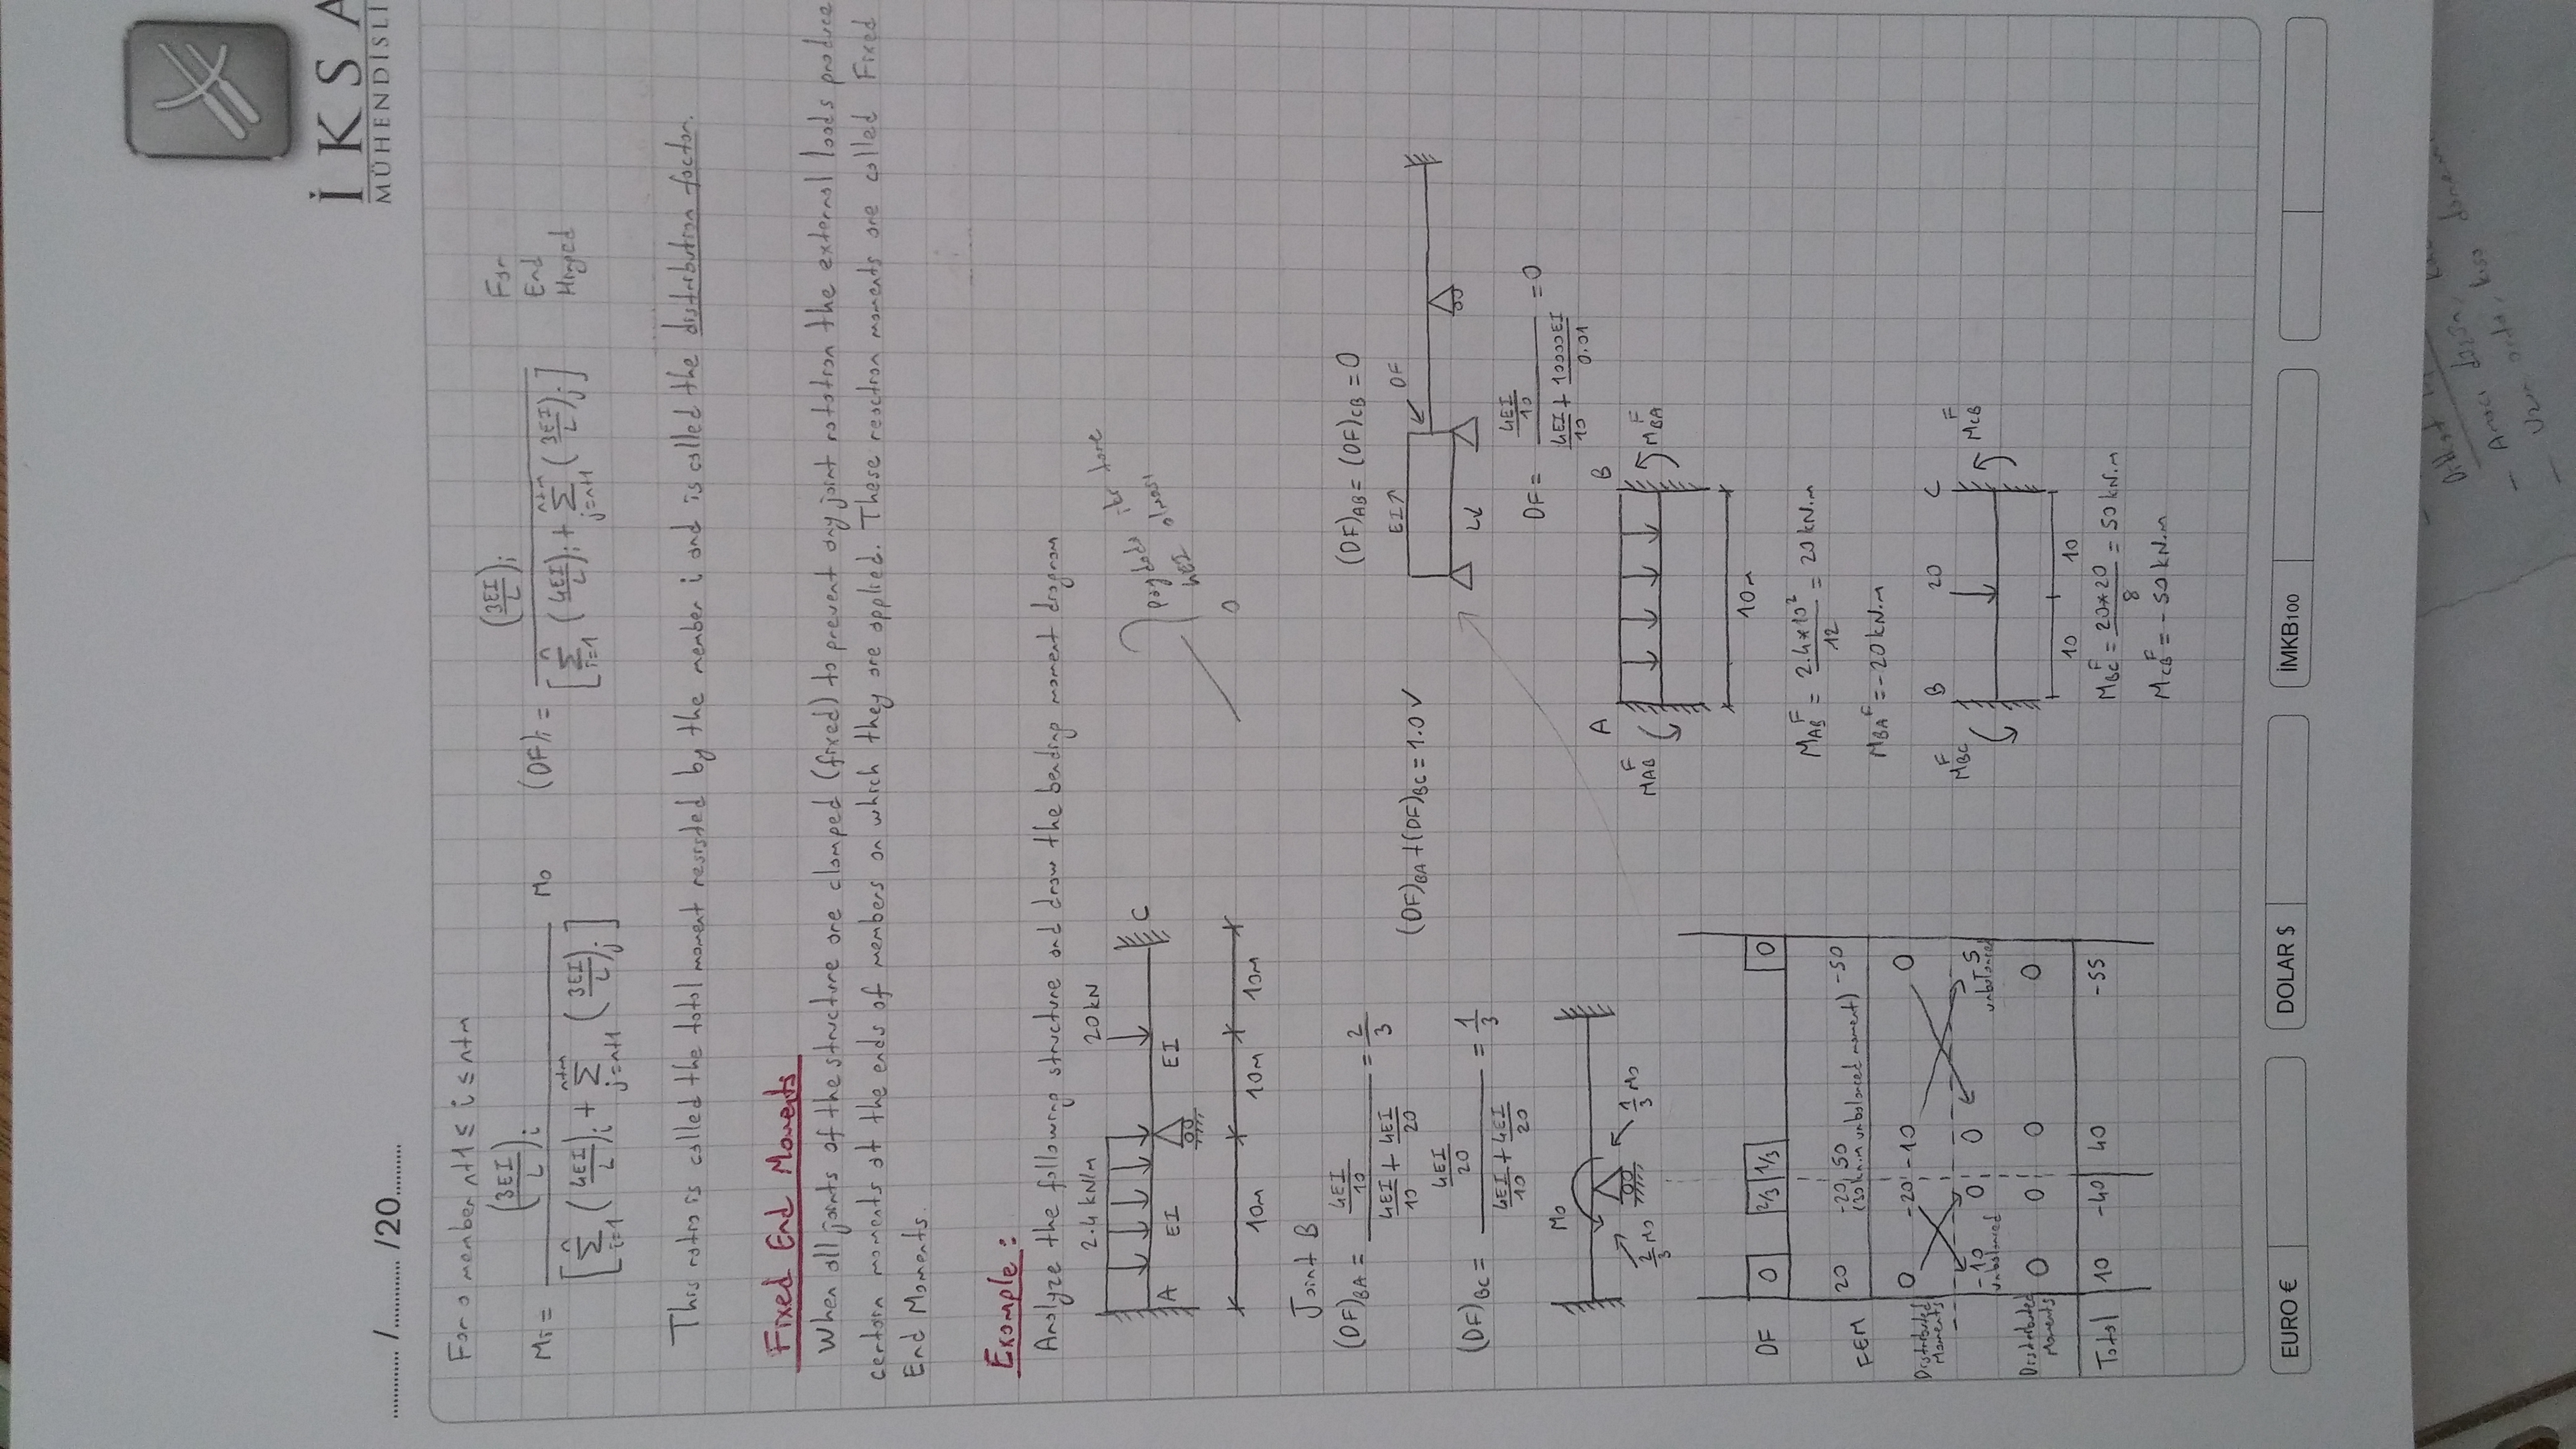 İKSA
MÜHENDİSLİ
............. /............. /20..........
For a member n+1 ≤ i ≤ n+m
Mi = (3EI/L)i / [Σ i=1 n (4EI/L)i + Σ j=n+1 n+m (3EI/L)j] Mo
(DF)i = (3EI/L)i / [Σ i=1 n (4EI/L)i + Σ j=n+1 n+m (3EI/L)j]
For
End
Hinged
This ratio is called the total moment resisted by the member i and is called the distribution factor.
Fixed End Moments
When all joints of the structure are clamped (fixed) to prevent any joint rotation the external loads produce
certain moments at the ends of members on which they are applied. These reaction moments are called Fixed
End Moments.
Example:
Analyze the following structure and draw the bending moment diagram
2.4 kN/m 20 kN
A EI EI C
10m 10m 10m
Paydada iki tane
4EI olması
0
Joint B
(DF)BA = (4EI/10) / (4EI/10 + 4EI/20) = 2/3
(DF)BA + (DF)BC = 1.0 ✓
(DF)BC = (4EI/20) / (4EI/10 + 4EI/20) = 1/3
(DF)AB = (DF)CB = 0
EI↑ DF
L↙
DF = (4EI/10) / (4EI/10 + 10000EI/0.01) = 0
Mo
2/3 Mo 1/3 Mo
A B
MAB^F MBA^F
10m
MAB^F = 2.4*10²/12 = 20 kN.m
MBA^F = -20 kN.m
B 20 C
MBC^F MCB^F
10 10
MBC^F = 20*20/8 = 50 kN.m
MCB^F = - 50 kN.m
DF 0 2/3 1/3 0
FEM 20 -20 50 -50
(30 kN.m unbalanced moment)
Distributed Moments 0 -20 -10 0
-10 0 0 -5
unbalanced unbalanced
Distributed Moments 0 0 0 0
Total 10 -40 40 -55
EURO €
DOLAR $
İMKB100
Dikkat
- Amacı düzgün,
- Uzun orta, kısa